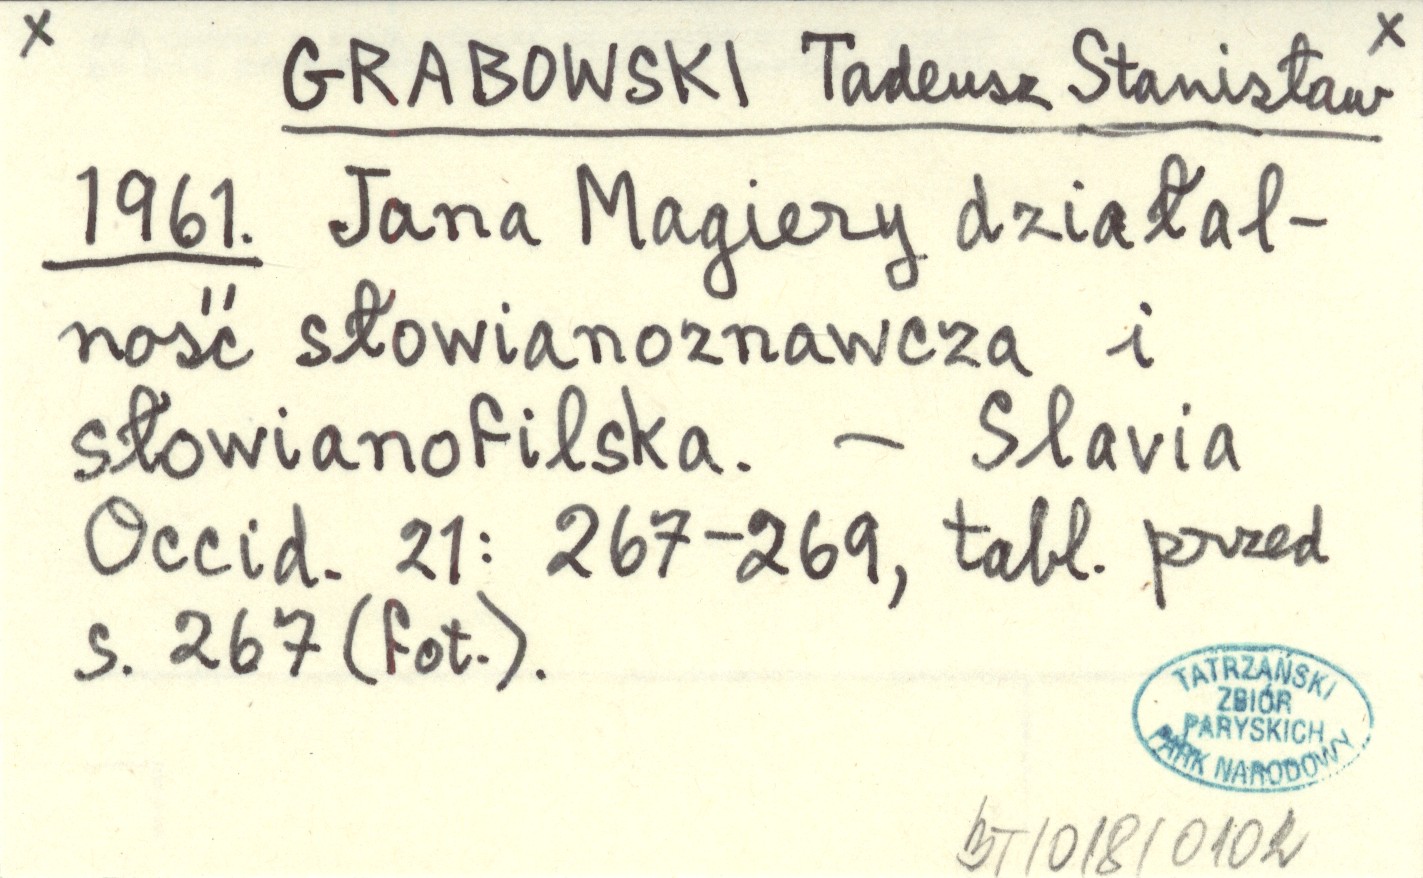 x x
GRABOWSKI Tadeusz Stanisław
1961. Jana Magiery działal-
ność słowianoznawcza i
słowianofilska. – Slavia
Occid. 21: 267–269, tabl. przed
s. 267 (fot.).
TATRZAŃSKI
ZBIÓR
PARYSKICH
PARK NARODOWY
BT/018/0102